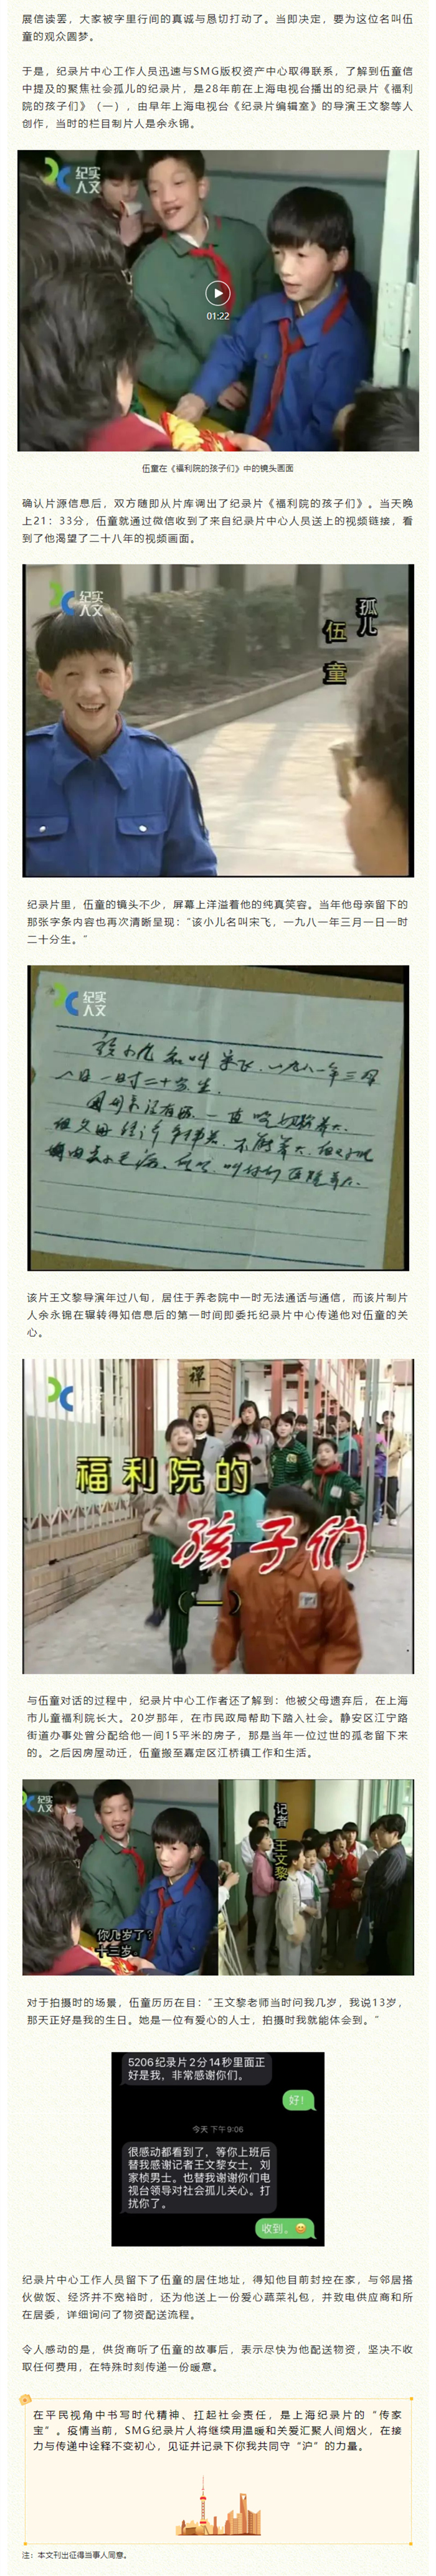 展信读罢，大家被字里行间的真诚与恳切打动了。当即决定，要为这位名叫伍
童的观众圆梦。
于是，纪录片中心工作人员迅速与SMG版权资产中心取得联系，了解到伍童信
中提及的聚焦社会孤儿的纪录片，是28年前在上海电视台播出的纪录片《福利
院的孩子们》（一），由早年上海电视台《纪录片编辑室》的导演王文黎等人
创作，当时的栏目制片人是余永锦。
纪实
人文
01:22
伍童在《福利院的孩子们》中的镜头画面
确认片源信息后，双方随即从片库调出了纪录片《福利院的孩子们》。当天晚
上21：33分，伍童就通过微信收到了来自纪录片中心人员送上的视频链接，看
到了他渴望了二十八年的视频画面。
纪实
人文
孤儿
伍童
纪录片里，伍童的镜头不少，屏幕上洋溢着他的纯真笑容。当年他母亲留下的
那张字条内容也再次清晰呈现：“该小儿名叫宋飞，一九八一年三月一日一时
二十分生。”
纪实
人文
该小儿名叫宋飞，一九八一年三月
一日一时二十分生
该片王文黎导演年过八旬，居住于养老院中一时无法通话与通信，而该片制片
人余永锦在辗转得知信息后的第一时间即委托纪录片中心传递他对伍童的关
心。
禅
福利院的
孩子们
（一）
与伍童对话的过程中，纪录片中心工作者还了解到：他被父母遗弃后，在上海
市儿童福利院长大。20岁那年，在市民政局帮助下踏入社会。静安区江宁路
街道办事处曾分配给他一间15平米的房子，那是当年一位过世的孤老留下来
的。之后因房屋动迁，伍童搬至嘉定区江桥镇工作和生活。
纪实
人文
你几岁了？
十三岁。
记者
王文黎
对于拍摄时的场景，伍童历历在目：“王文黎老师当时问我几岁，我说13岁，
那天正好是我的生日。她是一位有爱心的人士，拍摄时我就能体会到。”
5206纪录片2分14秒里面正
好是我，非常感谢你们。
好！
今天 下午9:06
很感动都看到了，等你上班后
替我感谢记者王文黎女士，刘
家桢男士。也替我谢谢你们电
视台领导对社会孤儿关心。打
扰你了。
收到。
纪录片中心工作人员留下了伍童的居住地址，得知他目前封控在家，与邻居搭
伙做饭、经济并不宽裕时，还为他送上一份爱心蔬菜礼包，并致电供应商和所
在居委，详细询问了物资配送流程。
令人感动的是，供货商听了伍童的故事后，表示尽快为他配送物资，坚决不收
取任何费用，在特殊时刻传递一份暖意。
在平民视角中书写时代精神、扛起社会责任，是上海纪录片的“传家
宝”。疫情当前，SMG纪录片人将继续用温暖和关爱汇聚人间烟火，在接
力与传递中诠释不变初心，见证并记录下你我共同守“沪”的力量。
注：本文刊出征得当事人同意。